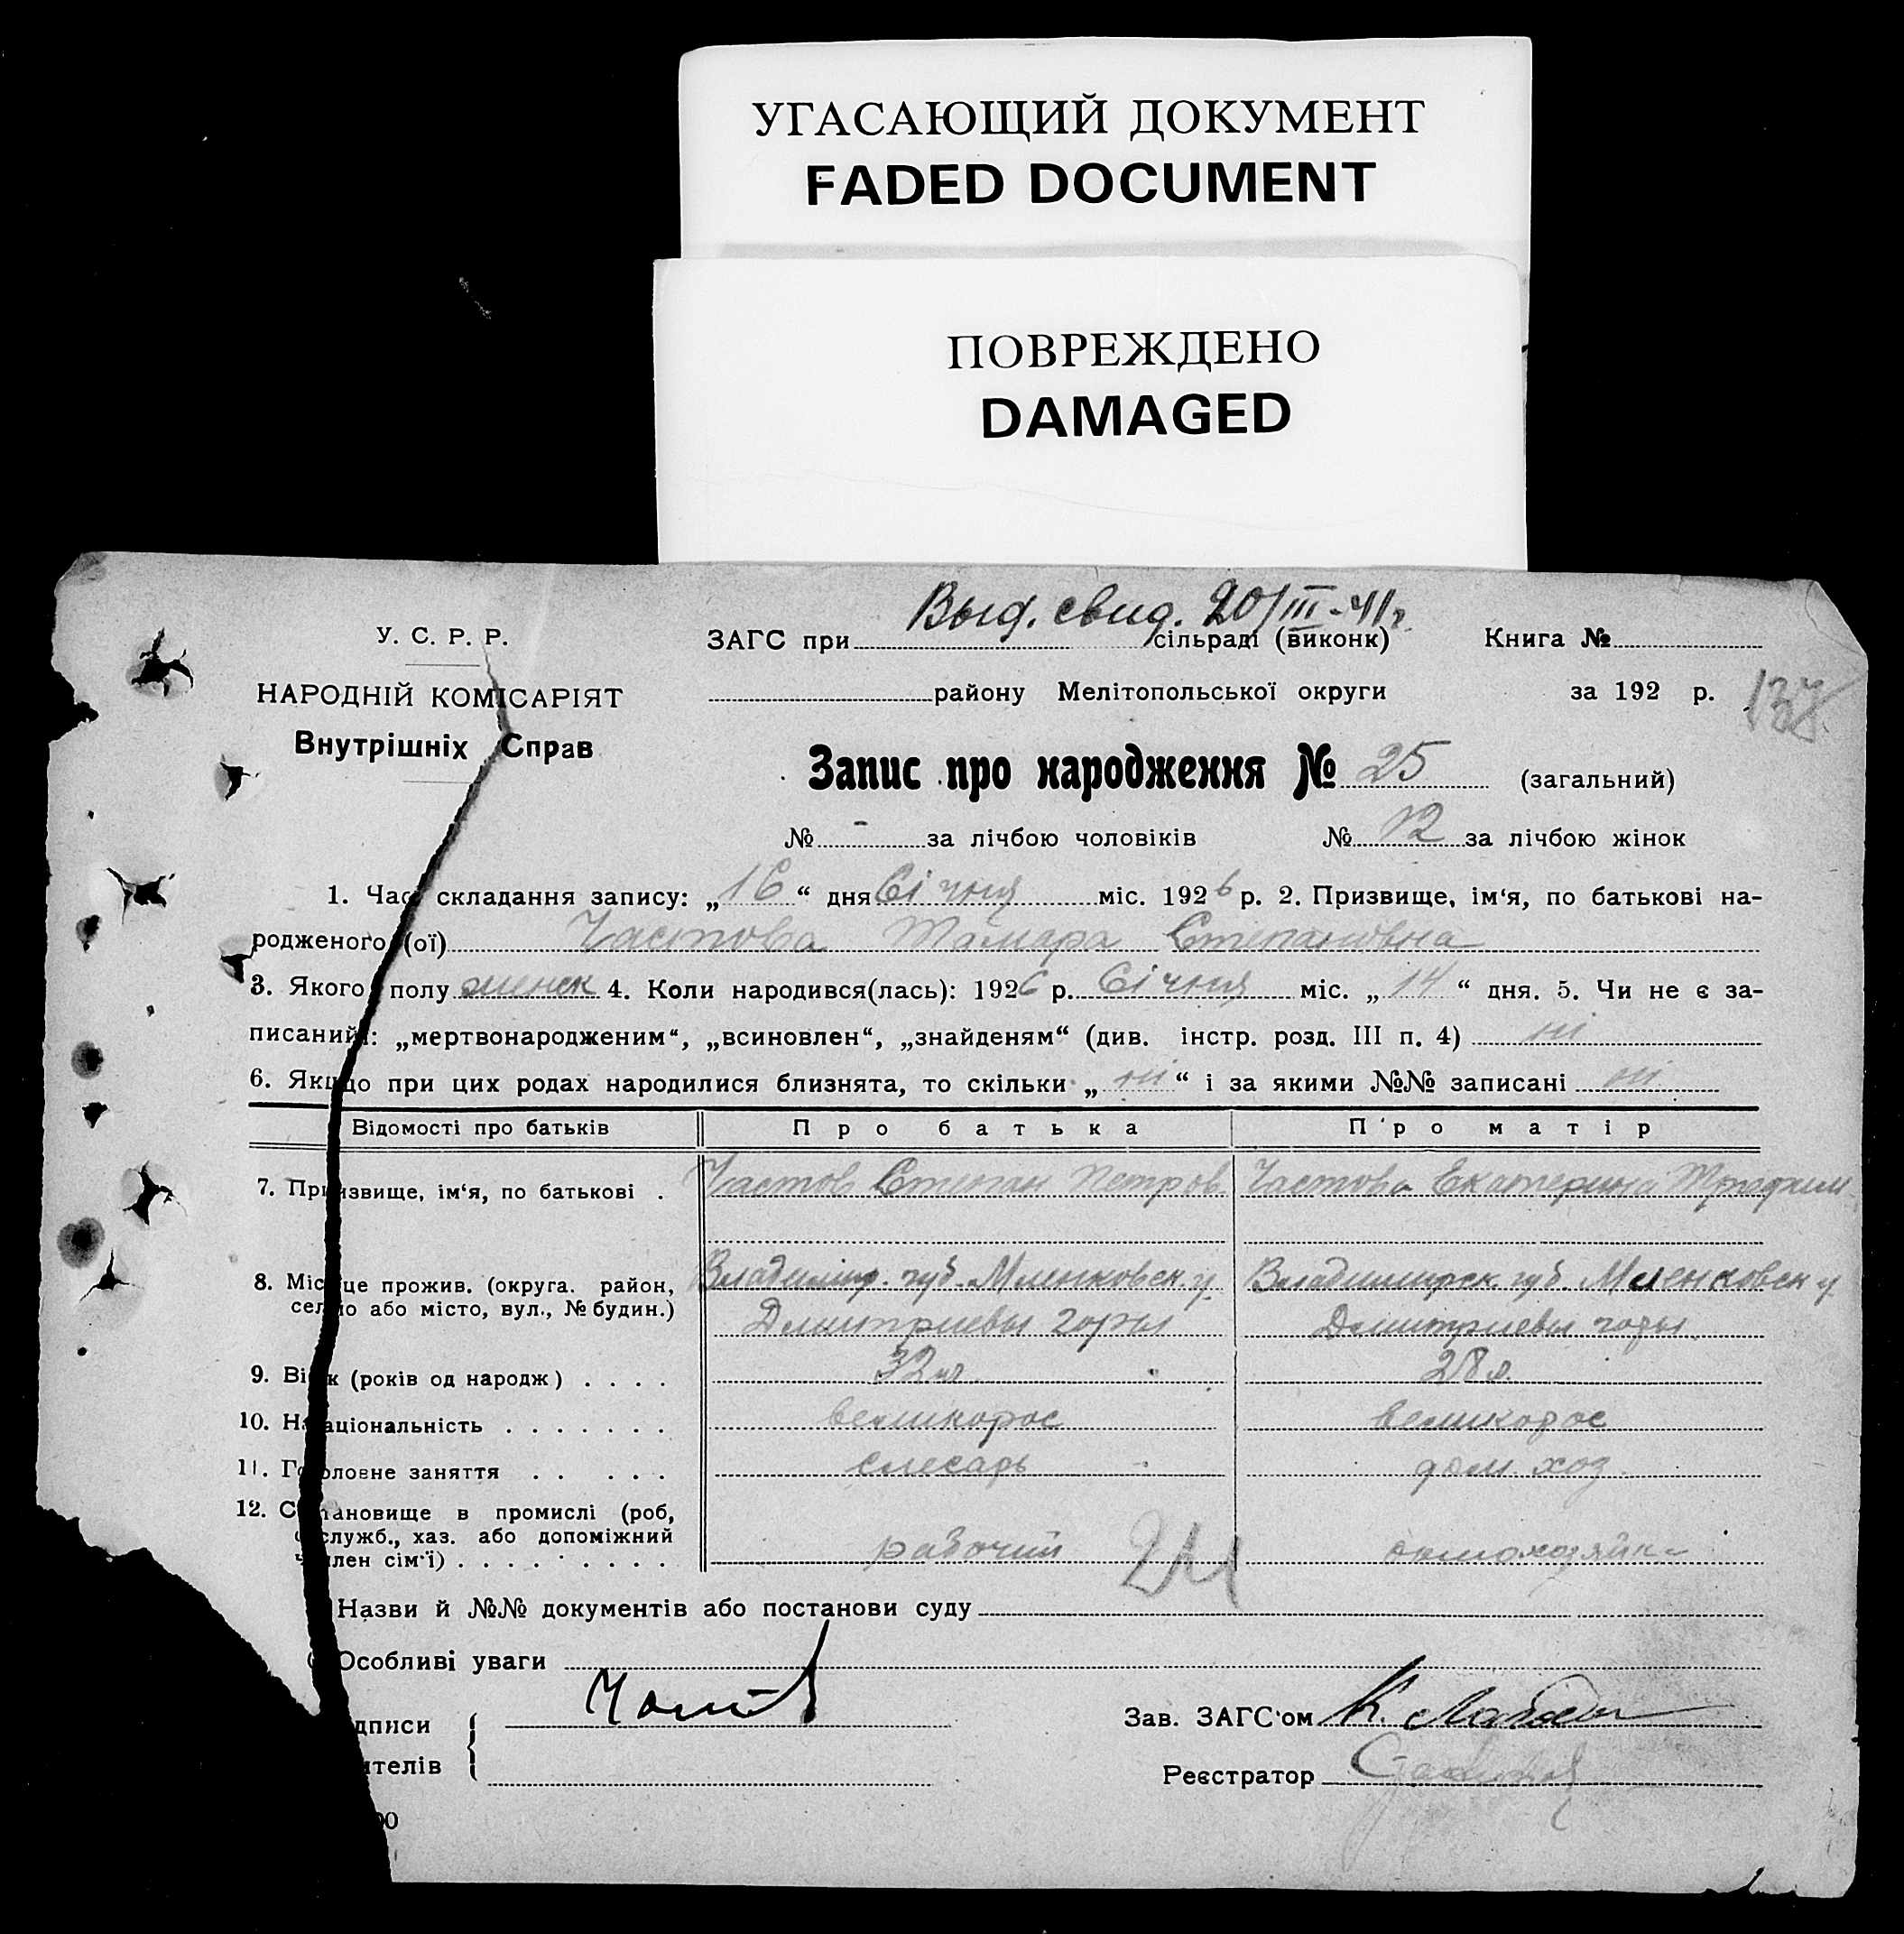 УГАСАЮЩИЙ ДОКУМЕНТ
FADED DOCUMENT
ПОВРЕЖДЕНО
DAMAGED
Выд. свид. 20/III-41г.
У. С. Р. Р.
ЗАГС при сільраді (виконк) Книга №
НАРОДНІЙ КОМІСАРІЯТ
району Мелітопольської округи за 192 р.
Внутрішніх Справ
Запис про народження № 25 (загальний)
№ - за лічбою чоловіків № 12 за лічбою жінок
1. Час складання запису: „16“ дня Січня міс. 1926 р. 2. Призвище, ім‘я, по батькові на-
родженого (ої) Частова Тамара Степановна
3. Якого полу женск 4. Коли народився(лась): 1926 р. Січня міс. „14“ дня. 5. Чи не є за-
писаний: „мертвонародженим“, „всиновлен“, „знайденям“ (див. інстр. розд. III п. 4) ні
6. Якщо при цих родах народилися близнята, то скільки „ні“ і за якими №№ записані ні
Відомості про батьків Про батька Про матір
7. Призвище, ім‘я, по батькові . Частов Степан Петров. Частова Екатерина Трофим
8. Місце прожив. (округа. район, Владимир. губ. Мленковск у. Владимирск. губ. Мленковск у
село або місто, вул., № будин.) Дмитриевы горы Дмитриевы горы
9. Вік (років од народж) . . . . 32 28 л.
10. Національність . . . . . . . великорос великорос
11. Головне заняття . . . . . слесарь дом. хоз.
12. Становище в промислі (роб,
служб., хаз. або допоміжний
член сім‘ї) . . . . . . . . . рабочий домохозяйка
Назви й №№ документів або постанови суду
Особливі уваги
дписи Зав. ЗАГС‘ом К.
ителів Реєстратор
00